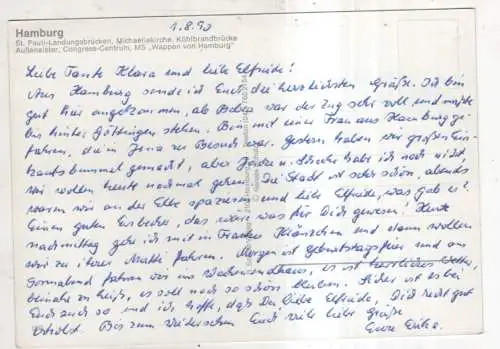 Hamburg
St. Pauli-Landungsbrücken, Michaeliskirche, Köhlbrandbrücke
Außenalster, Congress-Centrum, MS „Wappen von Hamburg"
1.8.90
Liebe Tante Klara und liebe Elfriede!
Aus Hamburg sende ich Euch die herzlichsten Grüße. Ich bin
gut hier angekommen, ab war der Zug sehr voll und mußte
bis hinter Göttingen stehen. Bin mit einer Frau aus Hamburg ge-
fahren, die in Jena zu Besuch war. Gestern haben wir großen Ein-
kaufsbummel gemacht, aber habe ich noch nicht,
wir wollen heute nochmal gehen. Die Stadt ist sehr schön, abends
waren wir an der Elbe spazieren und liebe Elfriede, was gab es?
Einen guten Eisbecher, das wäre was für Dich gewesen! Heute
nachmittag gehe ich mit in Frankes und dann wollen
wir zu ihrer Mutti fahren. Morgen ist Geburtstagsfeier und am
Sonnabend fahren wir ins Wochenendhaus, es ist herrliches Wetter,
beinahe zu heiß, es soll noch so schön bleiben. Sicher ist es bei
Euch auch so und ich hoffe, daß Du liebe Elfriede, Dich recht gut
erholst. Bis zum Wiedersehen Euch viele liebe Grüße
Eure Erika.